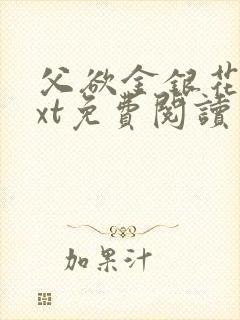 父欲金銀花
xt免費閱讀
加果汁